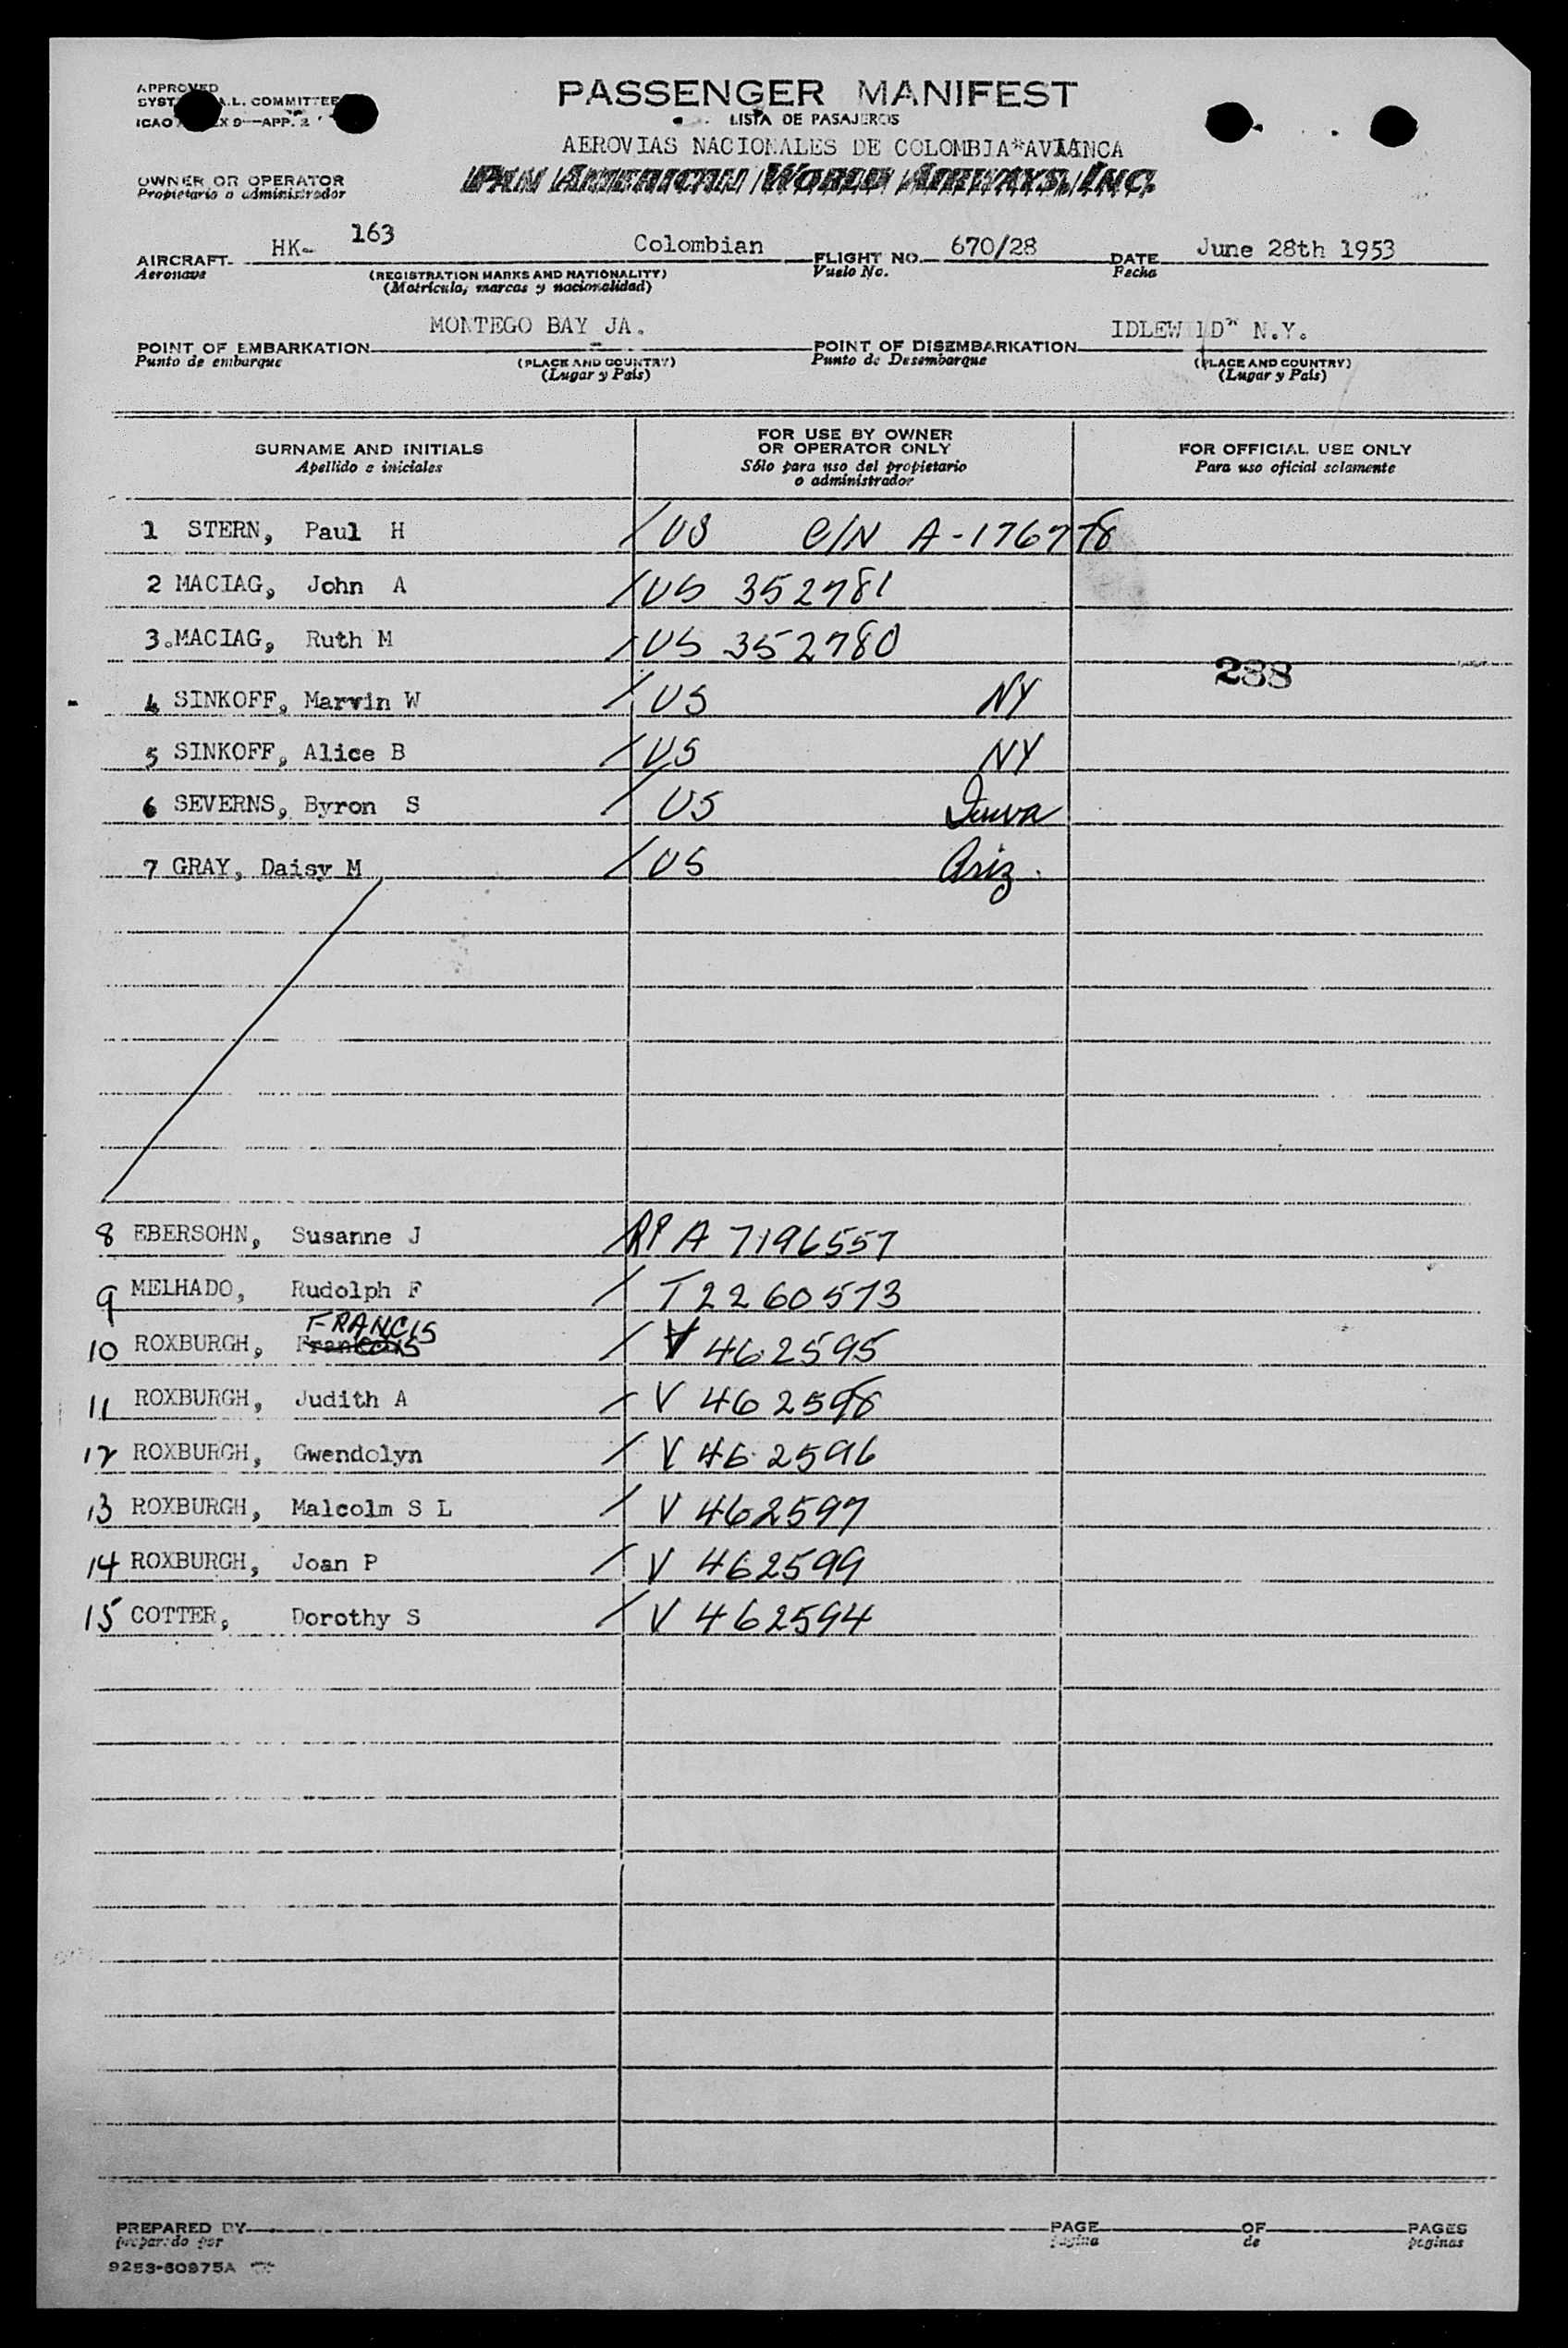 APPROVED
SYST A.L. COMMITTEE
ICAO X 9—APP. 2
PASSENGER MANIFEST
LISTA DE PASAJEROS
AEROVIAS NACIONALES DE COLOMBIA*AVIANCA
OWNER OR OPERATOR PAN AMERICAN WORLD AIRWAYS, INC.
Propietario o administrador
AIRCRAFT HK- 163 Colombian FLIGHT NO. 670/28 DATE June 28th 1953
Aeronave (REGISTRATION MARKS AND NATIONALITY) Vuelo No. Fecha
(Matricula, marcas y nacionalidad)
POINT OF EMBARKATION MONTEGO BAY JA. POINT OF DISEMBARKATION IDLEWILD" N.Y.
Punto de embarque (PLACE AND COUNTRY) Punto de Desembarque (PLACE AND COUNTRY)
(Lugar y País) (Lugar y País)
SURNAME AND INITIALS FOR USE BY OWNER OR OPERATOR ONLY FOR OFFICIAL USE ONLY
Apellido e iniciales Sólo para uso del propietario o administrador Para uso oficial solamente
1 STERN, Paul H / US C/N A-176778
2 MACIAG, John A / US 352781
3. MACIAG, Ruth M / US 352780
238
4 SINKOFF, Marvin W / US NY
5 SINKOFF, Alice B / US NY
6 SEVERNS, Byron S / US Iowa
7 GRAY, Daisy M / US Ariz.
8 EBERSOHN, Susanne J / RP A 7196557
9 MELHADO, Rudolph F / T2260573
FRANCIS
10 ROXBURGH, / V 462595
11 ROXBURGH, Judith A / V 462598
12 ROXBURGH, Gwendolyn / V 462596
13 ROXBURGH, Malcolm S L / V 462597
14 ROXBURGH, Joan P / V 462599
15 COTTER, Dorothy S / V 462594
PREPARED BY PAGE OF PAGES
preparado por página de paginas
9253-60975A